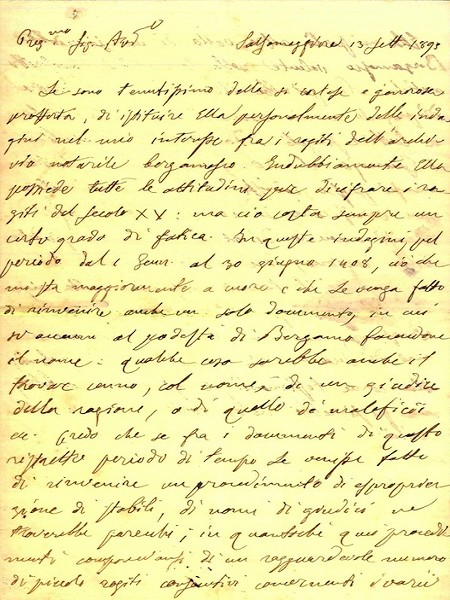 Preg.mo Sigr Avv.o Salsomaggiore 13 Sett 1895
Le sono tenutissimo della sì cortese e generosa
profferta, di istituire Ella personalmente delle inda
gini nel mio interesse fra i rogiti dell'archi
vio notarile bergamasco. Indubbiamente Ella
possiede tutte le attitudini per dicifrare i ro
giti del secolo XV: ma ciò costa sempre un
certo grado di fatica. In queste indagini, pel
periodo dal 1 Genn. al 30 giugno 1408, ciò che
mi sta maggiormente a cuore è che Le venga fatto
di rinvenire anche un solo documento, in cui
si accenni al podestà di Bergamo facendone
il nome: qualche cosa sarebbe anche il
trovar cenno, col nome, di un giudice
della ragione, o di quello de' maleficii
ec. Credo che se fra i documenti di questo
ristretto periodo di tempo Le venisse fatto
di rinvenire un procedimento di espropria
zione di stabili, di nomi di giudici ne
troverebbe parecchi; in quantochè quei procedi
menti componevansi di un ragguardevole numero
di piccoli rogiti concernenti i varii